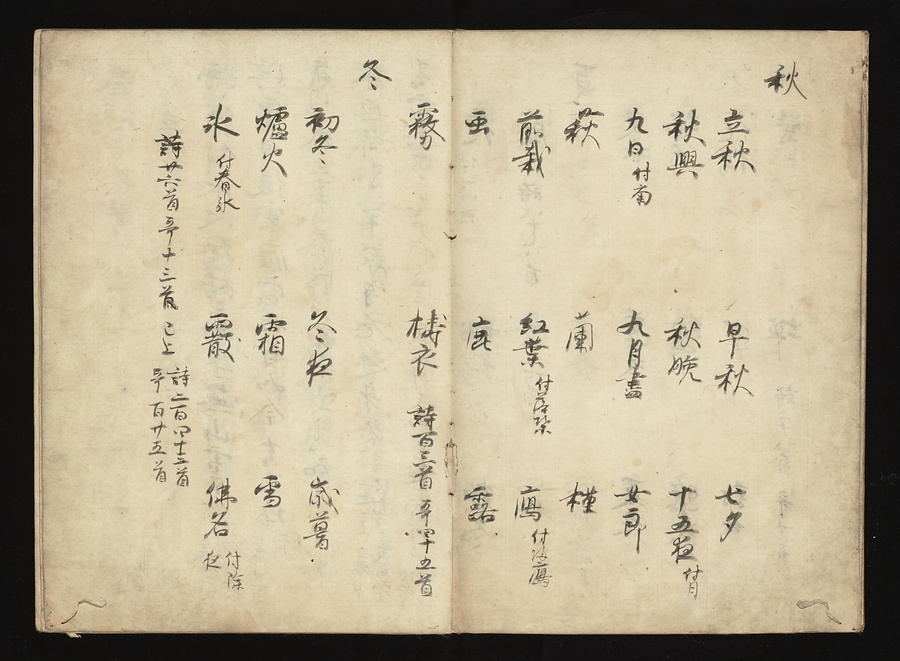 秋
立秋 早秋 七夕
秋興 秋晩 十五夜付月
九日付菊 九月盡 女郎
萩 蘭 槿
前栽 紅葉付落葉 鴈付帰鴈
虫 鹿 露
霧 擣衣 詩百三首 哥四十五首
冬
初冬 冬夜 歳暮
爐火 霜 雪
氷付春氷 霰 佛名付除夜
詩廿六首 哥十三首 已上 詩二百四十二首 哥百廿五首